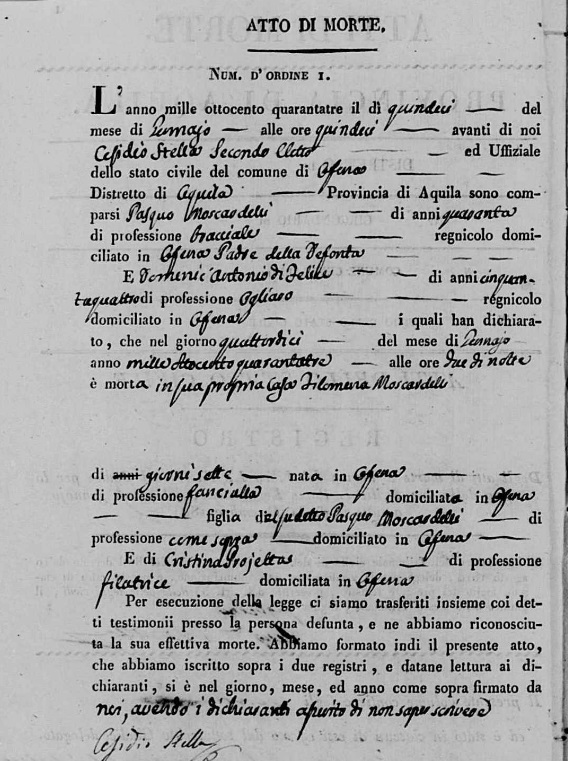 ATTO DI MORTE.
NUM. D'ORDINE 1.
L'anno mille ottocento quarantatre il dì quindeci — del
mese di Gennajo — alle ore quindeci — avanti di noi
Cesidio Stella Secondo Eletto — ed Uffiziale
dello stato civile del comune di Ofena — —
Distretto di Aquila — Provincia di Aquila sono com-
parsi Pasquo Moscardelli — — di anni quaranta
di professione Bracciale — — regnicolo domi-
ciliato in Ofena Padre della Defonta — — —
E Domenic'Antonio di Felice — — di anni cinquan-
taquattro di professione — — regnicolo
domiciliato in Ofena — — i quali han dichiara-
to, che nel giorno quattordici — del mese di Gennajo
anno mille ottocento quarantatre — alle ore due di notte
è morta in sua propria Casa Filomena Moscardelli
di anni giorni sette — nata in Ofena —
di professione fanciulla — domiciliata in Ofena
— — figlia del sudetto Pasquo Moscardelli — di
professione come sopra — domiciliato in Ofena —
E di Cristina Projetta — — di professione
filatrice — domiciliata in Ofena
Per esecuzione della legge ci siamo trasferiti insieme coi det-
ti testimonii presso la persona defunta, e ne abbiamo riconosciu-
ta la sua effettiva morte. Abbiamo formato indi il presente atto,
che abbiamo iscritto sopra i due registri, e datane lettura ai di-
chiaranti, si è nel giorno, mese, ed anno come sopra firmato da
noi, avendo i dichiaranti asserito di non saper scrivere
Cesidio Stella